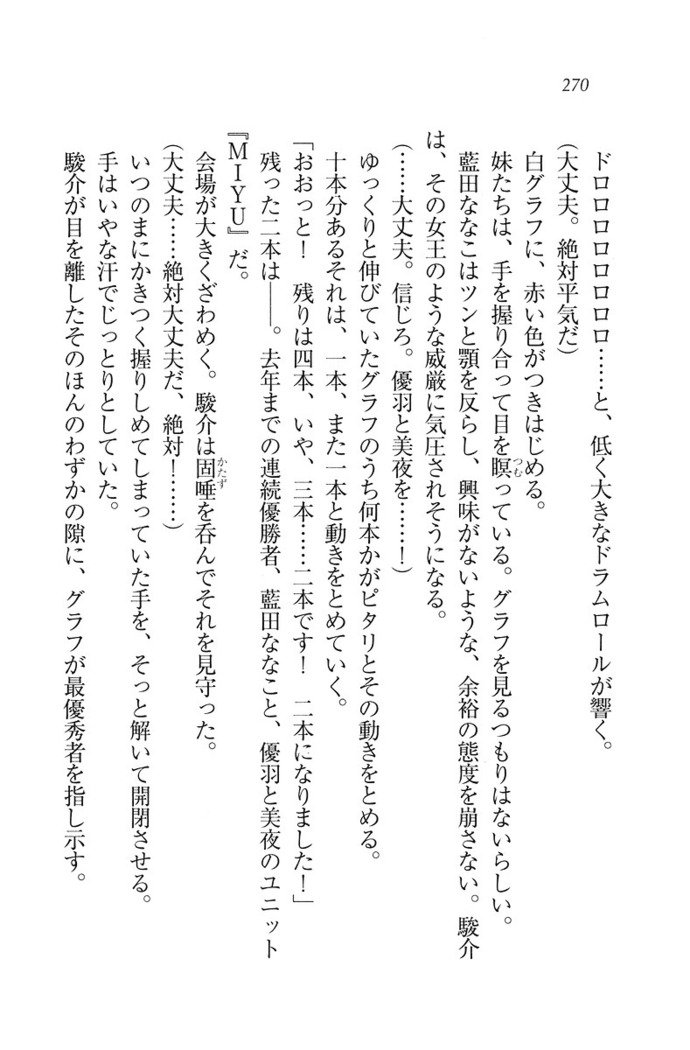 270
ドロロロロロロロロ……と、低く大きなドラムロールが響く。
(大丈夫。絶対平気だ)
白グラフに、赤い色がつきはじめる。
妹たちは、手を握り合って目を瞑っている。グラフを見るつもりはないらしい。
藍田ななこはツンと顎を反らし、興味がないような、余裕の態度を崩さない。駿介
は、その女王のような威厳に気圧されそうになる。
(……大丈夫。信じろ。優羽と美夜を……！)
ゆっくりと伸びていたグラフのうち何本かがピタリとその動きをとめる。
十本分あるそれは、一本、また一本と動きをとめていく。
「おおっと！　残りは四本、いや、三本……二本です！　二本になりました！」
残った二本は――。去年までの連続優勝者、藍田ななこと、優羽と美夜のユニット
『MIYU』だ。
会場が大きくざわめく。駿介は固唾を呑んでそれを見守った。
(大丈夫……絶対大丈夫だ、絶対！……)
いつのまにかきつく握りしめてしまっていた手を、そっと解いて開閉させる。
手はいやな汗でじっとりとしていた。
駿介が目を離したそのほんのわずかの隙に、グラフが最優秀者を指し示す。
つむ
かたず